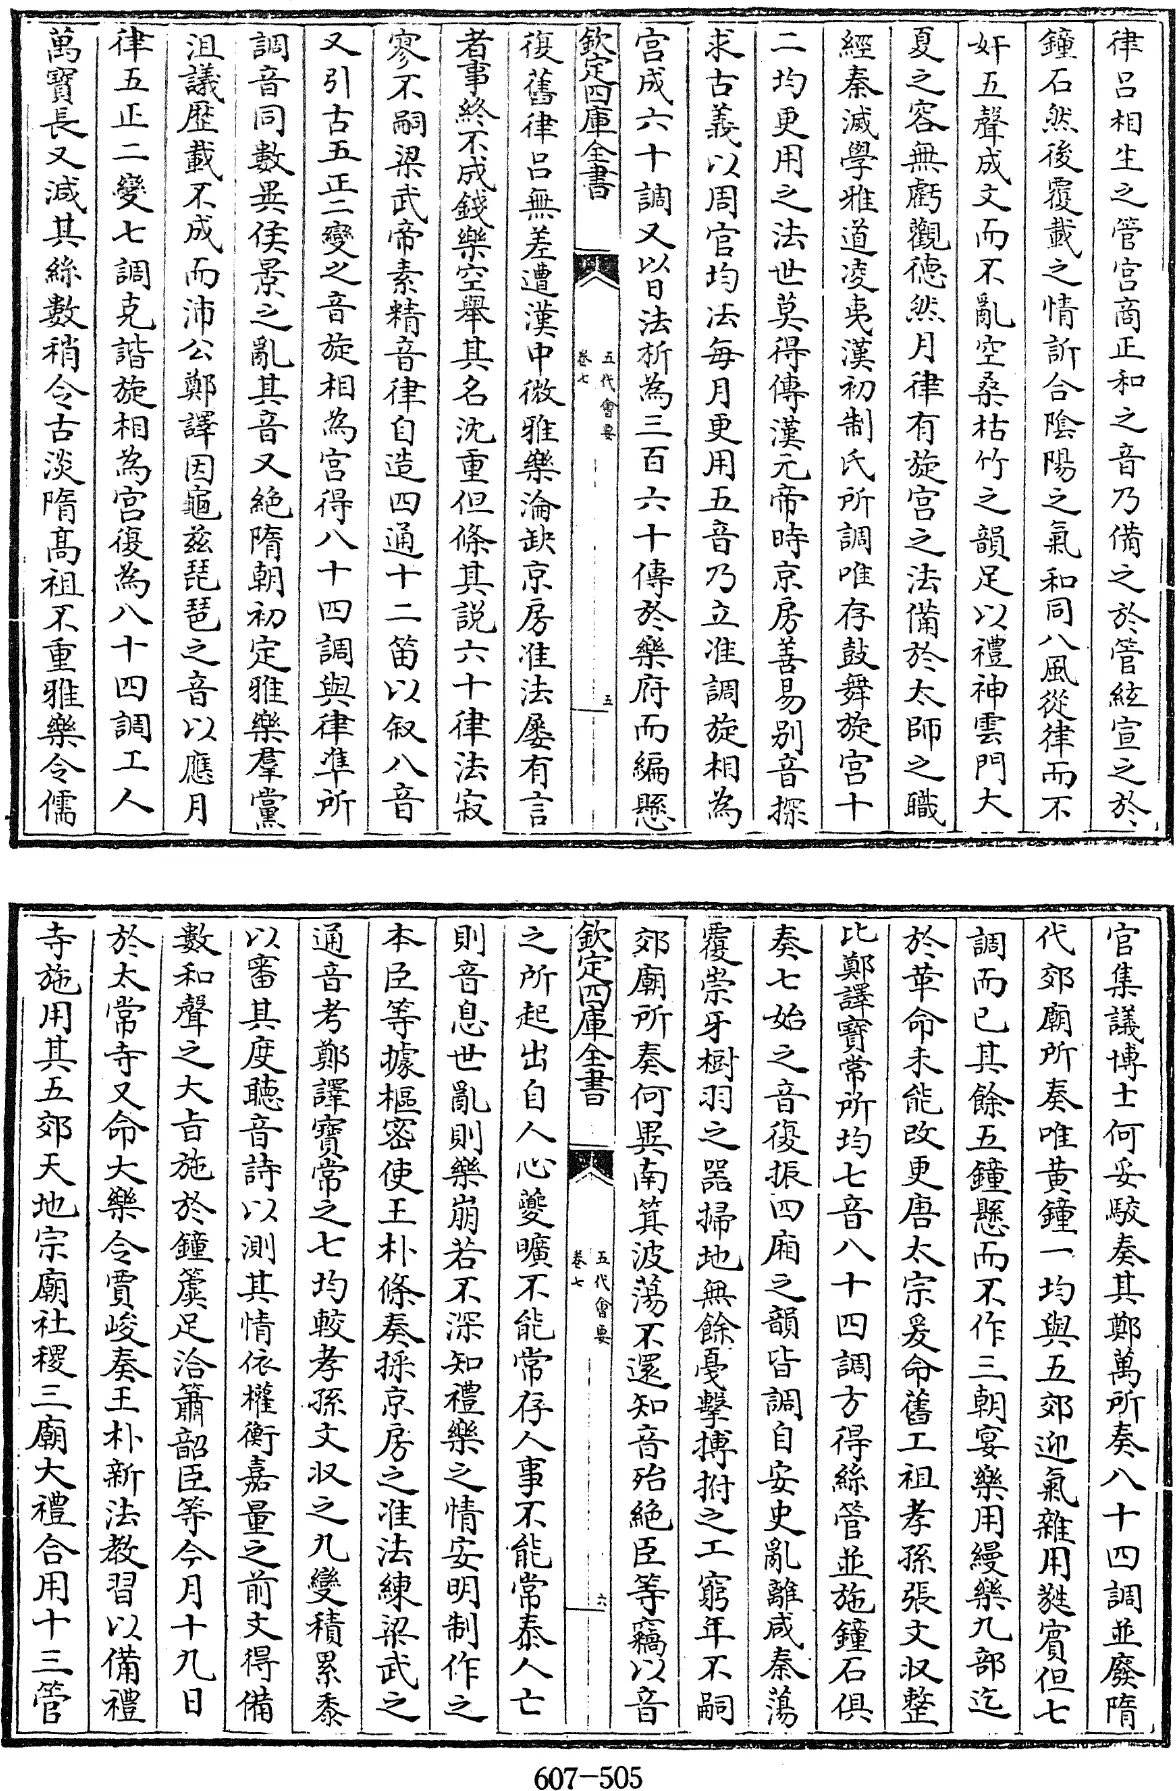 律呂相生之管宫商正和之音乃備之於管絃宣之於
鐘石然後覆載之情訢合陰陽之氣和同八風從律而不
奸五聲成文而不亂空桑枯竹之韻足以禮神雲門大
夏之容無虧觀德然月律有旋宫之法備於太師之職
經秦滅學雅道凌夷漢初制氏所調唯存鼓舞旋宫十
二均更用之法世莫得傳漢元帝時京房善易别音探
求古義以周官均法每月更用五音乃立准調旋相為
宫成六十調又以日法析為三百六十傳於樂府而編懸
欽定四庫全書
五代會要
卷七
五
復舊律呂無差遭漢中微雅樂淪缺京房准法屢有言
者事終不成錢樂空舉其名沈重但條其説六十律法寂
寥不嗣梁武帝素精音律自造四通十二笛以叙八音
又引古五正二變之音旋相為宫得八十四調與律準所
調音同數異侯景之亂其音又絶隋朝初定雅樂羣黨
沮議歴載不成而沛公鄭譯因龜兹琵琶之音以應月
律五正二變七調克諧旋相為宫復為八十四調工人
萬寶長又減其絲數稍令古淡隋髙祖不重雅樂令儒
官集議博士何妥駮奏其鄭萬所奏八十四調並廢隋
代郊廟所奏唯黄鐘一均與五郊迎氣雜用蕤賓但七
調而已其餘五鐘懸而不作三朝宴樂用縵樂九部迄
於革命未能改更唐太宗爰命舊工祖孝孫張文收整
比鄭譯寶常所均七音八十四調方得絲管並施鐘石俱
奏七始之音復振四廂之韻皆調自安史亂離咸秦蕩
覆崇牙樹羽之器掃地無餘戞擊搏拊之工窮年不嗣
郊廟所奏何異南箕波蕩不還知音殆絶臣等竊以音
欽定四庫全書
五代會要
卷七
六
之所起出自人心夔曠不能常存人事不能常泰人亡
則音息世亂則樂崩若不深知禮樂之情安明制作之
本臣等據樞密使王朴條奏採京房之准法練梁武之
通音考鄭譯寶常之七均較孝孫文收之九變積累黍
以審其度聽音詩以測其情依權衡嘉量之前文得備
數和聲之大旨施於鐘簴足洽簫韶臣等今月十九日
於太常寺又命大樂令賈峻奏王朴新法教習以備禮
寺施用其五郊天地宗廟社稷三廟大禮合用十三管
607-505